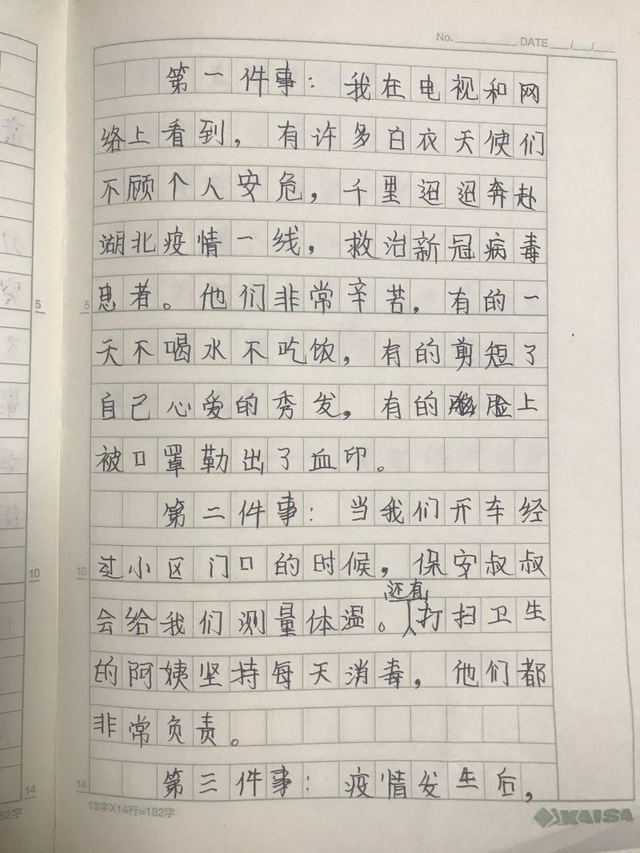 No. DATE / /
第一件事：我在电视和网
络上看到，有许多白衣天使们
不顾个人安危，千里迢迢奔赴
湖北疫情一线，救治新冠病毒
患者。他们非常辛苦，有的一
5 5
天不喝水不吃饭，有的剪短了
自己心爱的秀发，有的脸上
被口罩勒出了血印。
第二件事：当我们开车经
10 10
过小区门口的时候，保安叔叔
还有
会给我们测量体温。打扫卫生
的阿姨坚持每天消毒，他们都
非常负责。
14 14
第三件事：疫情发生后，
13字X14行=182字
KAISA